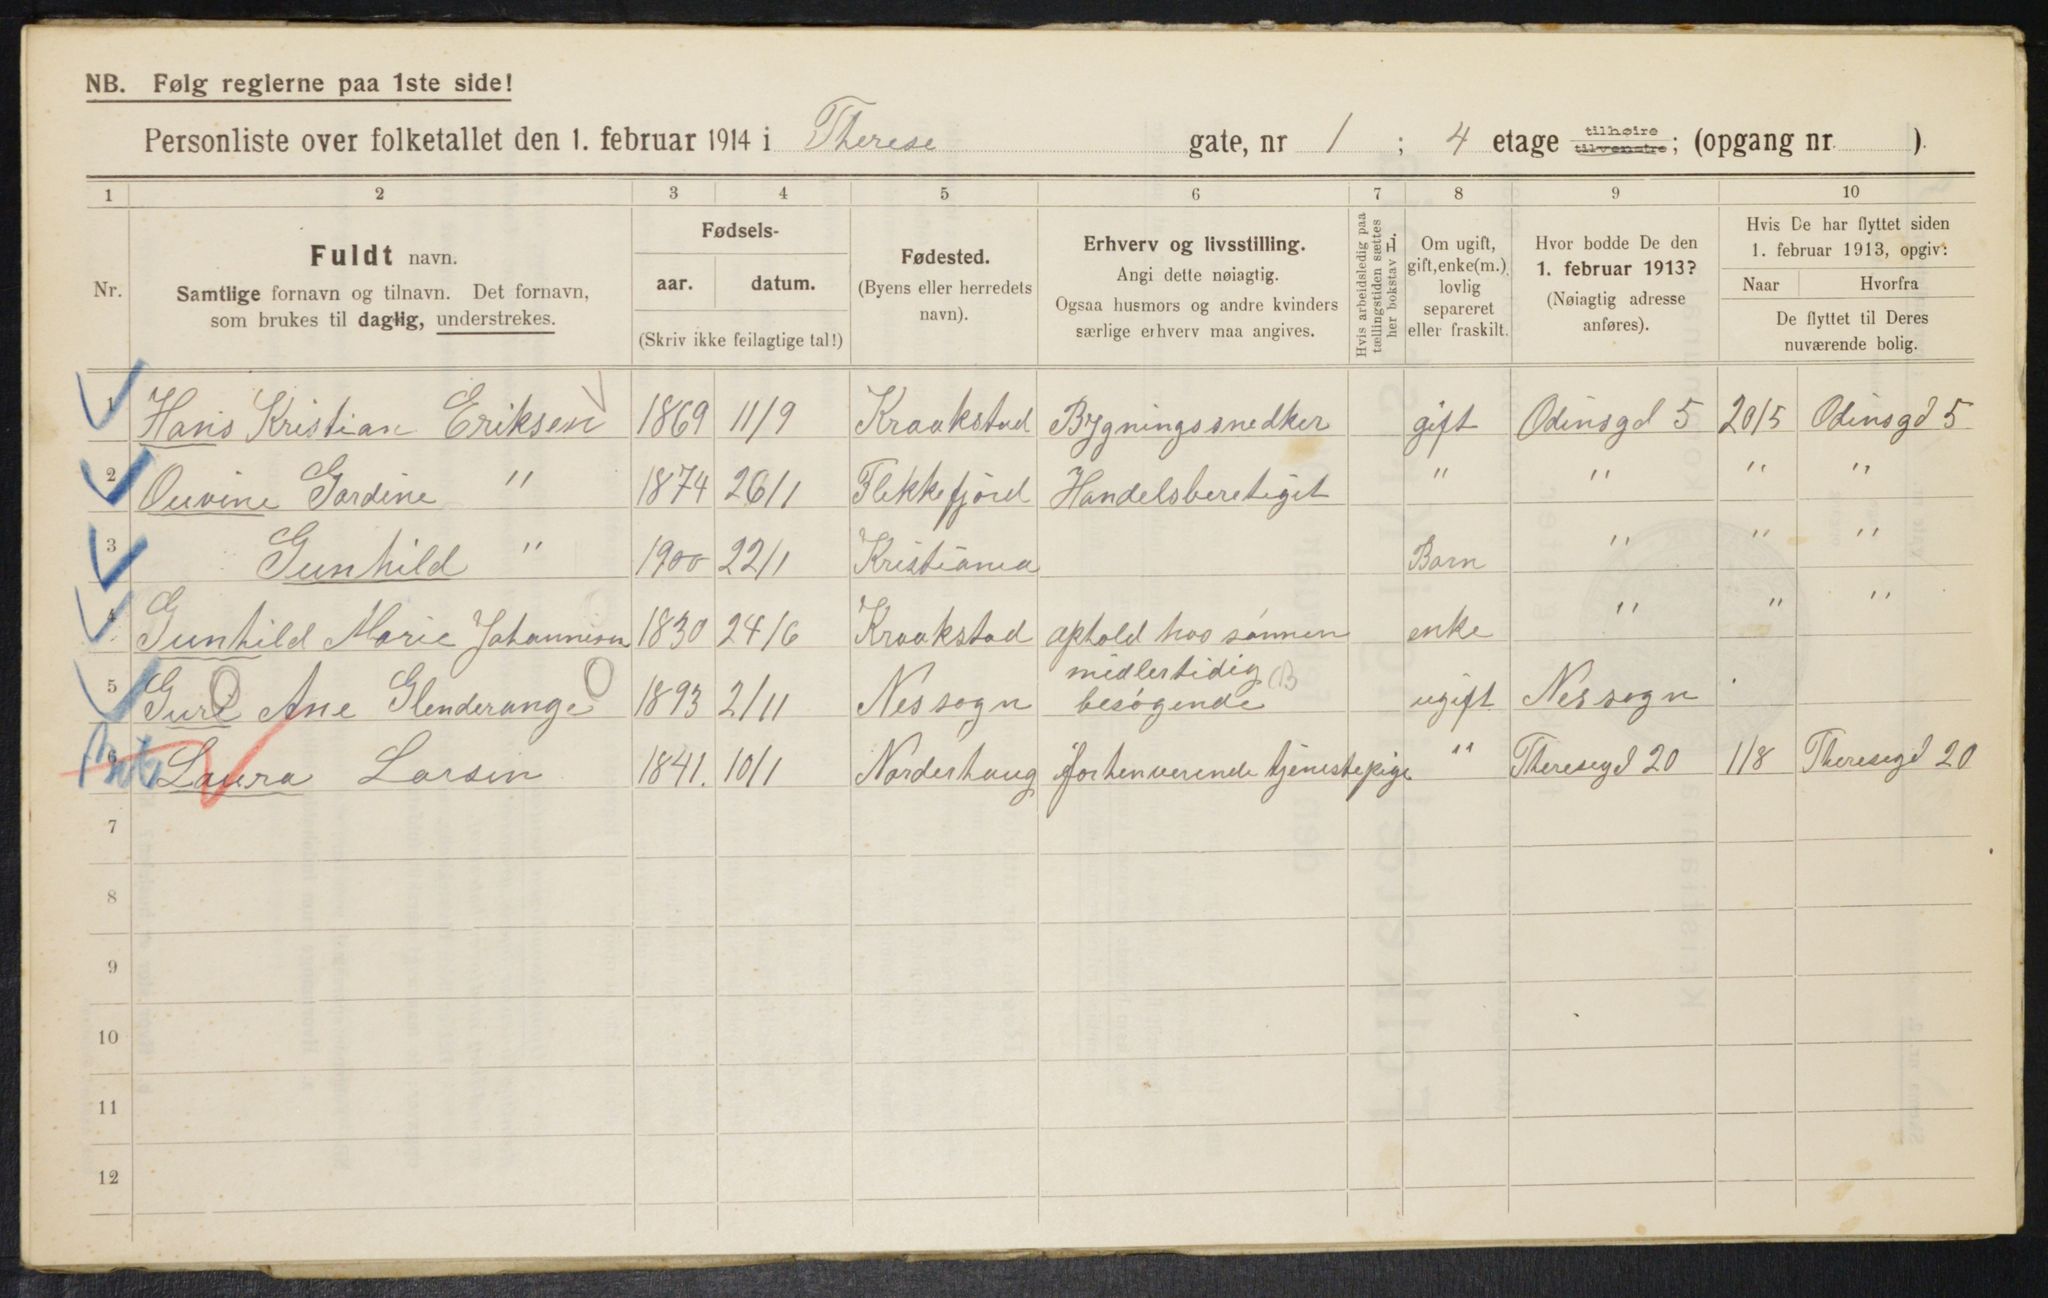 NB. Følg reglerne paa 1ste side!
Personliste over folketallet den 1. februar 1914 i Therese gate, nr 1 ; 4 etage tilhøire tilvenstre; (opgang nr. ).
1 2 3 4 5 6 7 8 9 10
Nr.
Fuldt navn.
Samtlige fornavn og tilnavn. Det fornavn,
som brukes til daglig, understrekes.
Fødsels-
aar. datum.
(Skriv ikke feilagtige tal!)
Fødested.
(Byens eller herredets
navn).
Erhverv og livsstilling.
Angi dette nøiagtig.
Ogsaa husmors og andre kvinders
særlige erhverv maa angives.
Hvis arbeidsledig paa
tællingstiden sættes
her bokstav L.
Om ugift,
gift, enke(m.)
lovlig
separeret
eller fraskilt.
Hvor bodde De den
1. februar 1913?
(Nøiagtig adresse
anføres).
Hvis De har flyttet siden
1. februar 1913, opgiv:
Naar Hvorfra
De flyttet til Deres
nuværende bolig.
1 Hans Kristian Eriksen 1869 11/9 Kraakstad Bygningssnedker gift Odinsgd 5 20/5 Odinsgd 5
2 Ouvine Gardine " 1874 26/1 Flekkefjord Handelsberetiget " " " "
3 Gunhild " 1900 22/1 Kristiania Barn " " "
4 Gunhild Marie Johannesen 1830 24/6 Kraakstad ophold hos sönnen enke " " "
5 Guri Ane Glenderange 1893 2/11 Nes sogn midlertidig besögende B ugift Nes sogn
6 Laura Larsen 1841. 10/1 Norderhaug forhenverende tjenestepige " Theresegd 20 1/8 Theresegd 20
7
8
9
10
11
12